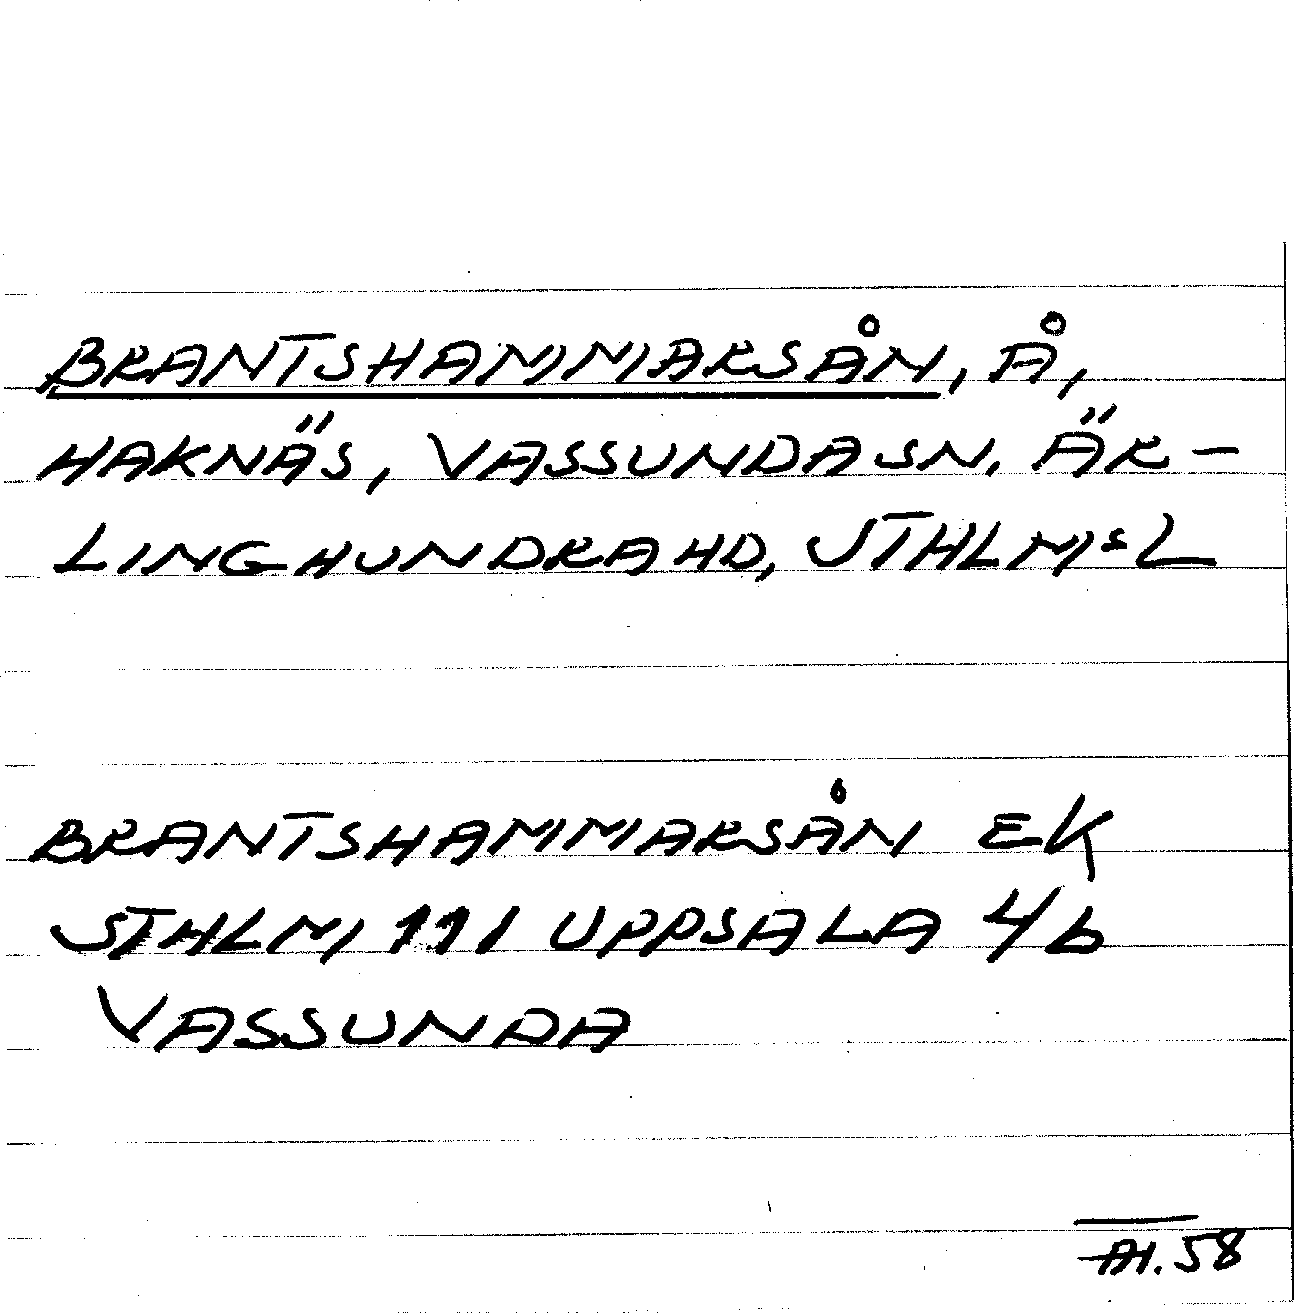 BRANTSHAMMARSÅN, Å,
HAKNÄS, VASSUNDA SN. ÄR-
LINGHUNDRA HD, STHLMS L
BRANTSHAMMARSÅN EK
STHLM 111 UPPSALA 4b
VASSUNDA
AH. 58